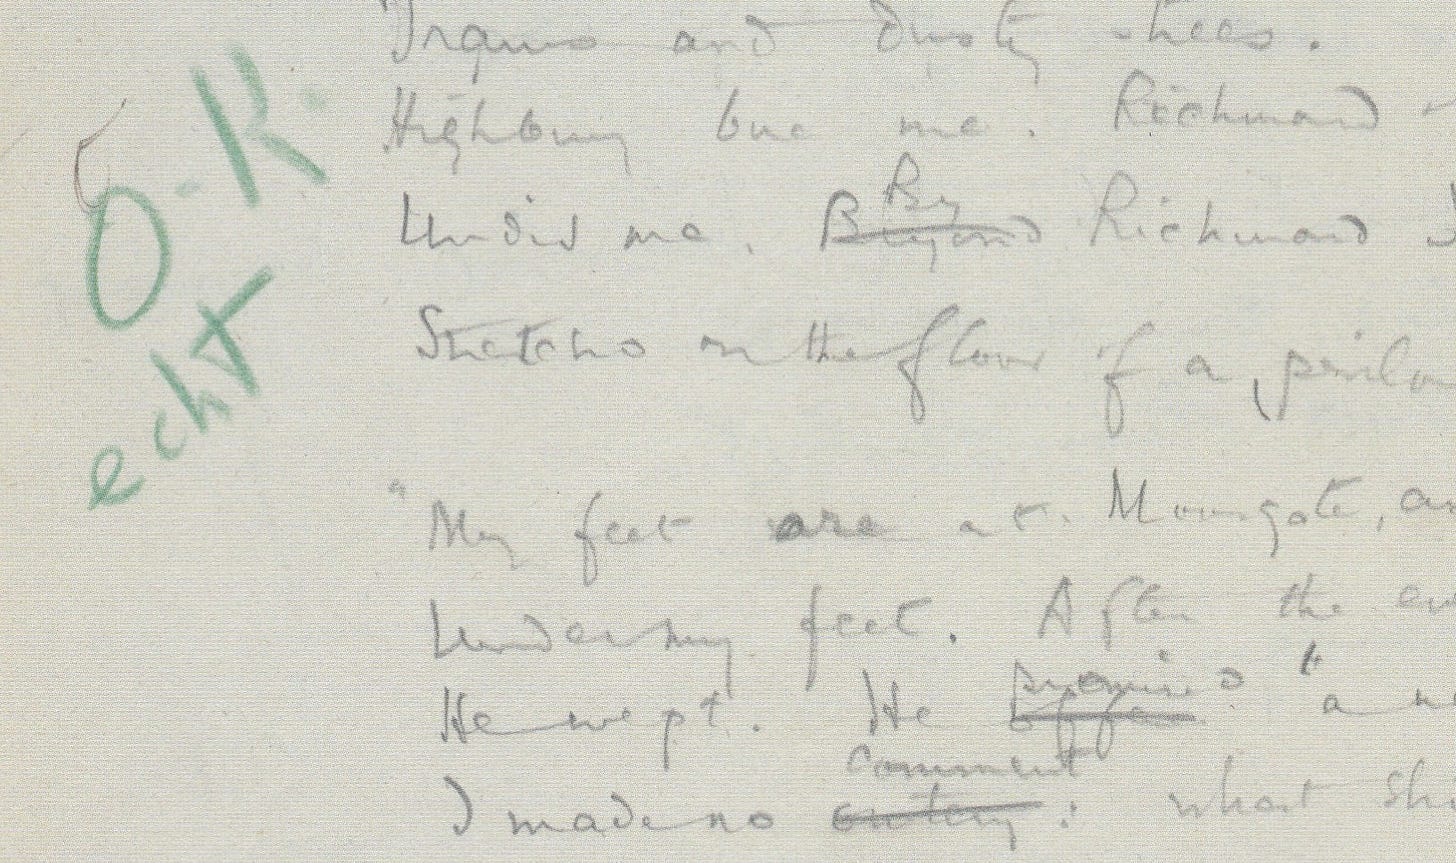 O.K.
echt
"Trams and dusty trees.
Highbury bore me. Richmond
Undid me. Beyond By Richmond
Stretched on the floor of a
"My feet are at Moorgate,
Under my feet. After the
He wept. He promised "a
comment
I made no outcry. what